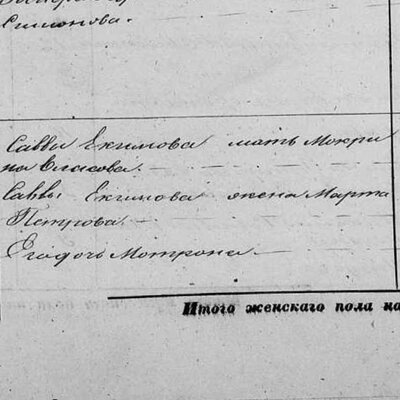 Симонова.
Саввы Екимова мать Мокри
на Власова.
Саввы Екимова жена Марта
Петрова.
Его дочь Матрона
Итого женскаго пола на